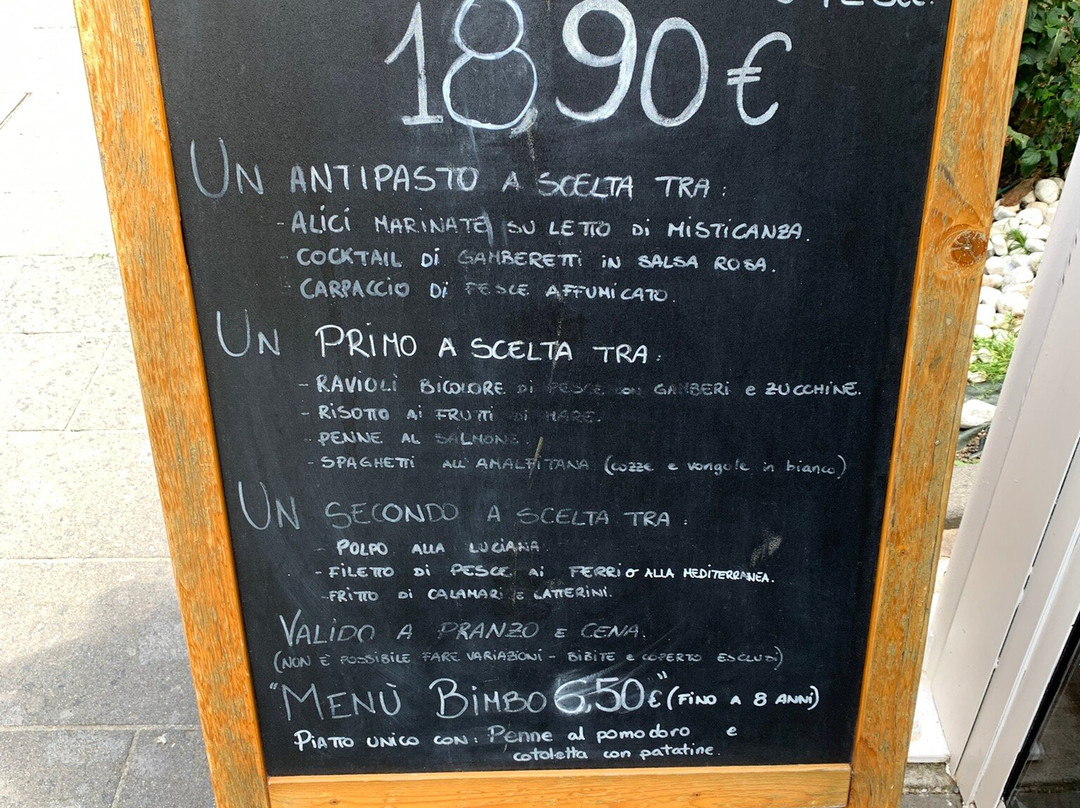 18,90 €
UN ANTIPASTO A SCELTA TRA:
- ALICI MARINATE SU LETTO DI MISTICANZA.
- COCKTAIL DI GAMBERETTI IN SALSA ROSA.
- CARPACCIO DI PESCE AFFUMICATO.
UN PRIMO A SCELTA TRA:
- RAVIOLI BICOLORE DI PESCE CON GAMBERI E ZUCCHINE.
- RISOTTO AI FRUTTI DI MARE.
- PENNE AL SALMONE.
- SPAGHETTI ALL'AMALFITANA (cozze e vongole in bianco)
UN SECONDO A SCELTA TRA:
- POLPO ALLA LUCIANA.
- FILETTO DI PESCE AI FERRI O ALLA MEDITERRANEA.
- FRITTO DI CALAMARI E LATTERINI.
VALIDO A PRANZO E CENA.
(NON E' POSSIBILE FARE VARIAZIONI - BIBITE E COPERTO ESCLUSI)
"MENÙ BIMBO 6,50€" (FINO A 8 ANNI)
PIATTO UNICO CON: Penne al pomodoro e
cotoletta con patatine.